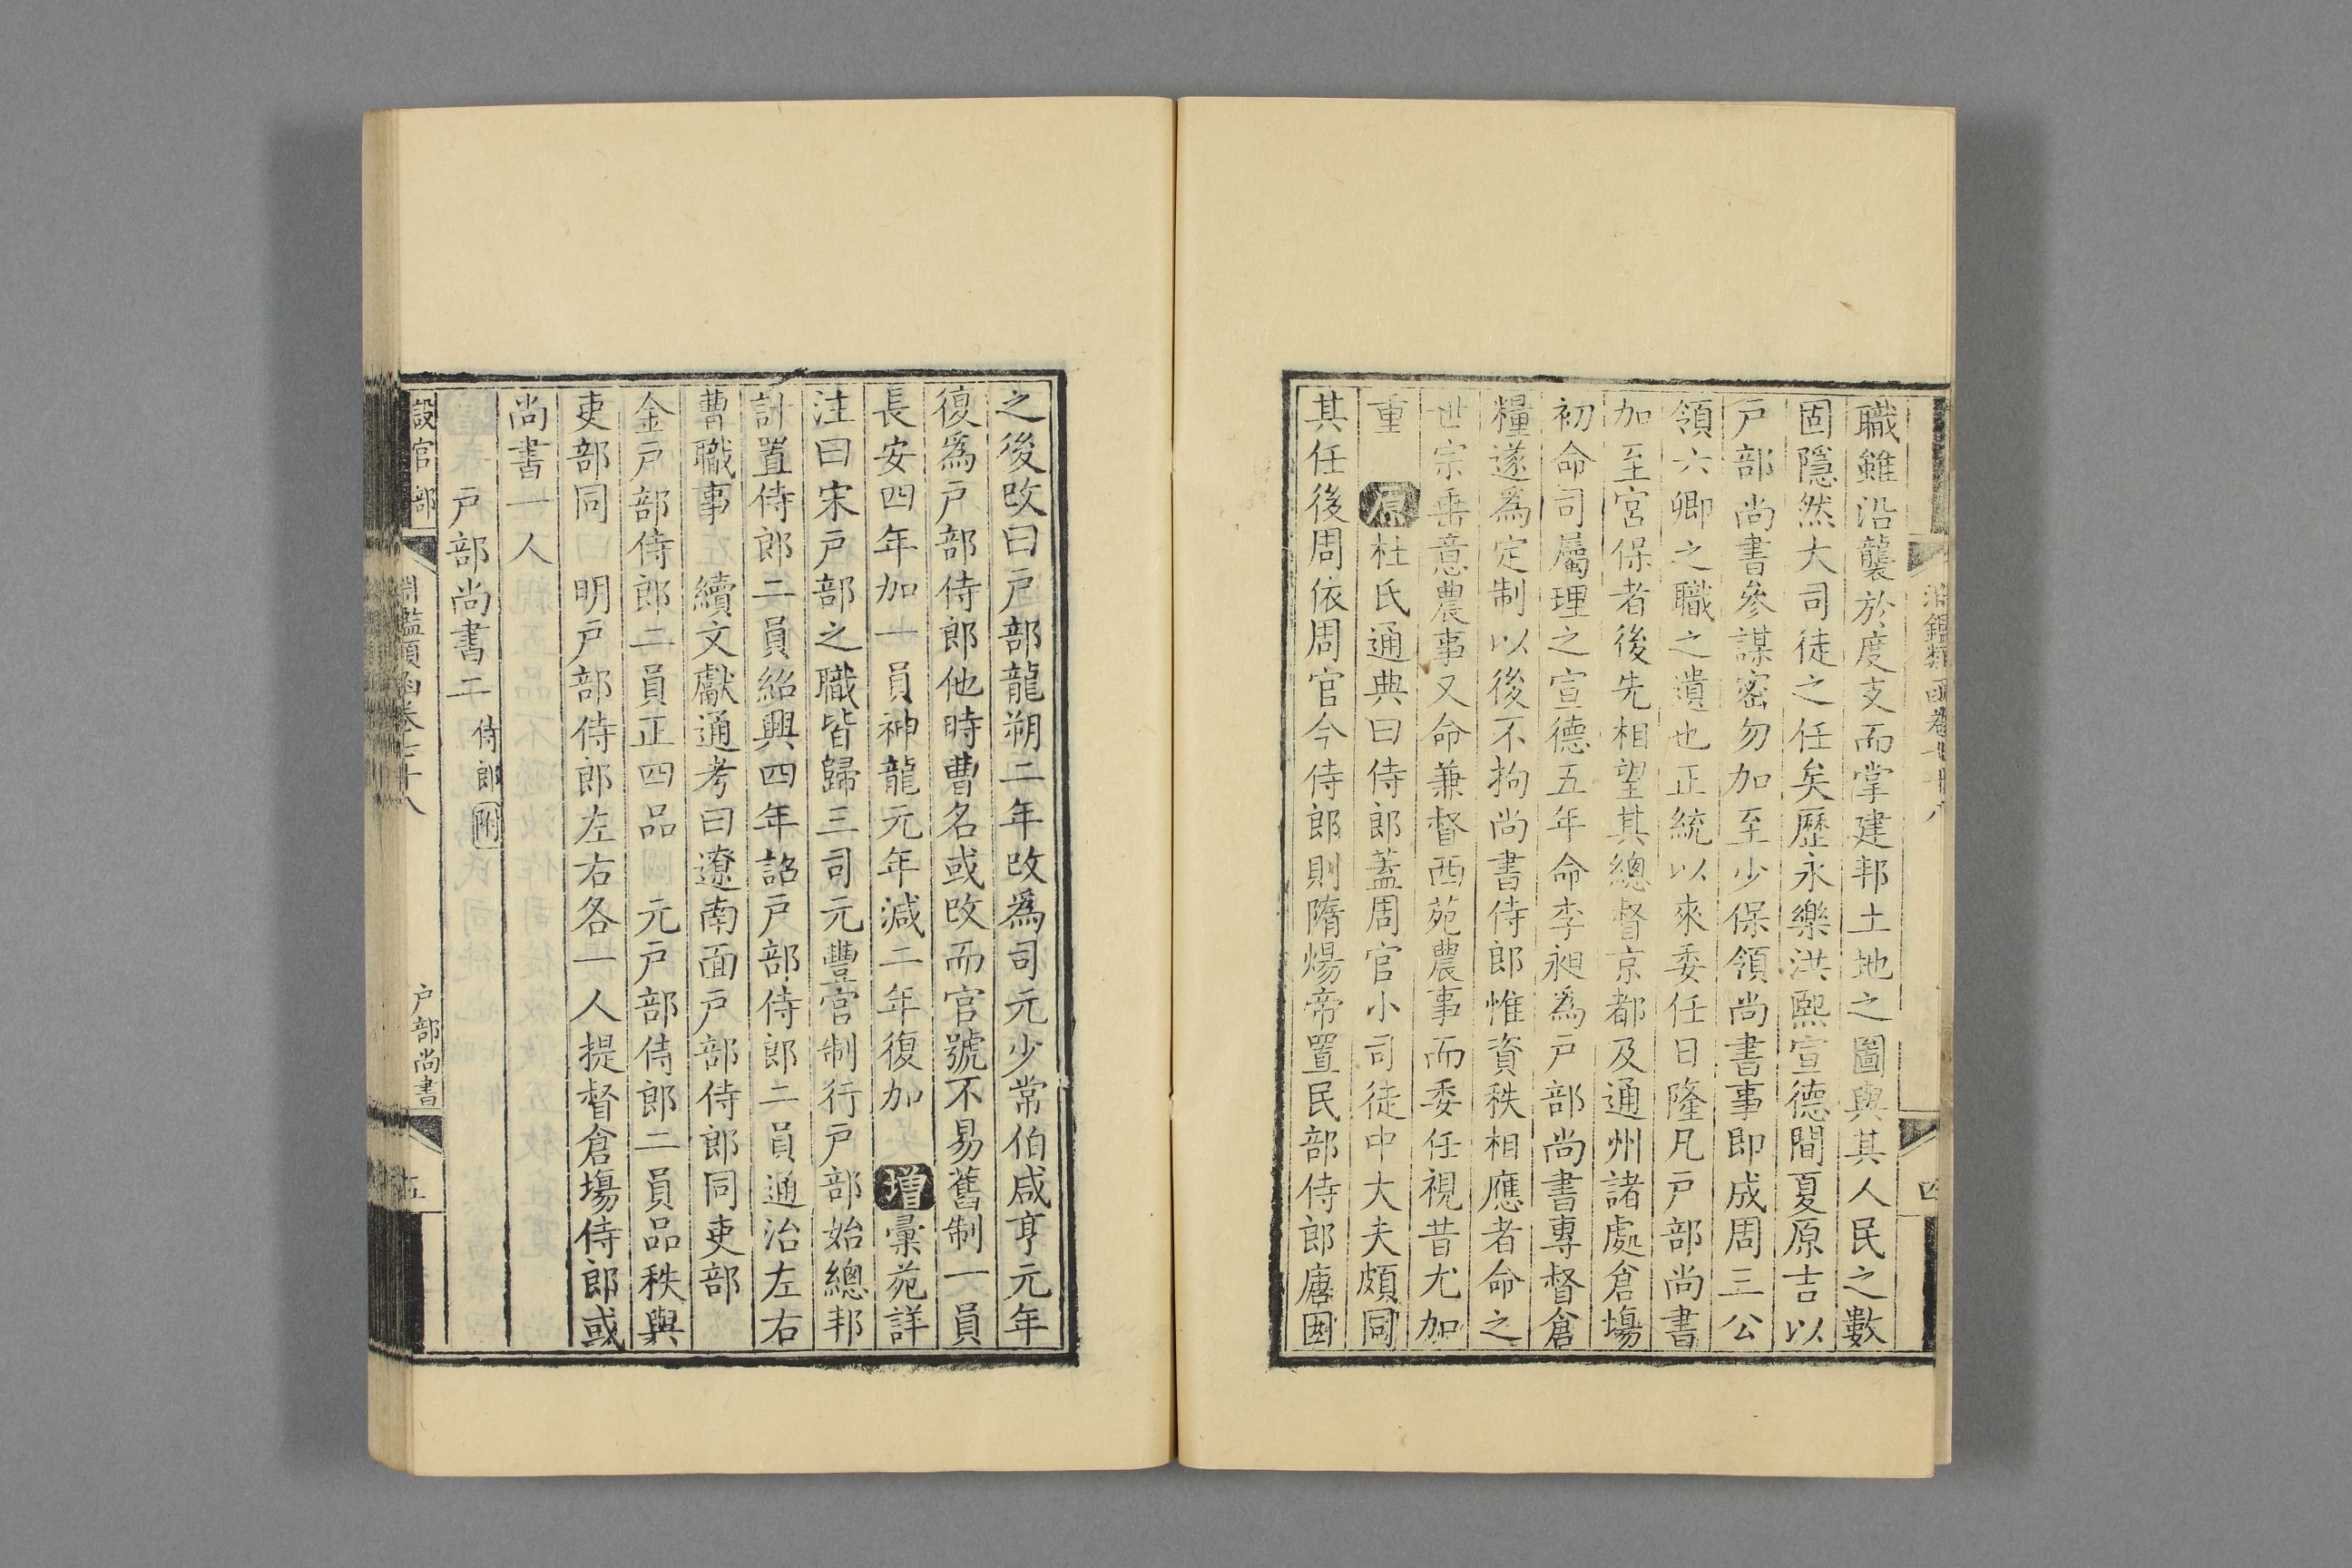 淵鑑類函卷七十八
四
職雖沿襲於度支而掌建邦土地之圖與其人民之數
固隱然大司徒之任矣歷永樂洪熙宣德間夏原吉以
戸部尚書參謀密勿加至少保領尚書事即成周三公
領六卿之職之遺也正統以來委任日隆凡戸部尚書
加至宮保者後先相望其總督京都及通州諸處倉塲
初命司屬理之宣德五年命李昶為戸部尚書專督倉
糧遂為定制以後不拘尚書侍郎惟資秩相應者命之
世宗垂意農事又命兼督西苑農事而委任視昔尤加
重 原杜氏通典曰侍郎蓋周官小司徒中大夫頗同
其任後周依周官今侍郎則隋煬帝置民部侍郎唐因
之後改曰戸部龍朔二年改為司元少常伯咸亨元年
復為戸部侍郎他時曹名或改而官號不易舊制一員
長安四年加一員神龍元年減二年復加 增彙苑詳
注曰宋戸部之職皆歸三司元豐官制行戸部始總邦
計置侍郎二員紹興四年詔戸部侍郎二員通治左右
曹職事 續文獻通考曰遼南面戸部侍郎同吏部
金戸部侍郎二員正四品 元戸部侍郎二員品秩與
吏部同 明戸部侍郎左右各一人提督倉塲侍郎或
尚書一人
戸部尚書二 侍郎附
設官部 淵鑑類函卷七十八 戸部尚書 五